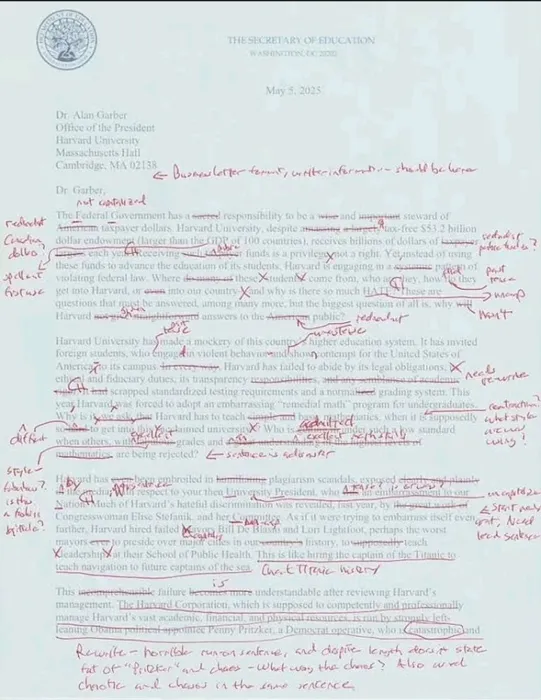 THE SECRETARY OF EDUCATION
WASHINGTON, DC 20202
May 5, 2025
Dr. Alan Garber
Office of the President
Harvard University
Massachusetts Hall
Cambridge, MA 02138
← Business letter format, writer information should be here
Dr. Garber,
not capitalized
The Federal Government has a sacred responsibility to be a wise and important steward of
American taxpayer dollars. Harvard University, despite amassing a largely tax-free $53.2 billion
dollar endowment (larger than the GDP of 100 countries), receives billions of dollars of taxpayer
each year. Receiving such funds is a privilege, not a right. Yet instead of using
these funds to advance the education of its students, Harvard is engaging in a systemic pattern of
violating federal law. Where do many of these students come from, who are they, how do they
get into Harvard, or even into our country and why is there so much HATE? These are
questions that must be answered, among many more, but the biggest question of all is, why will
Harvard not give straightforward answers to the American public?
redundant
spell out
first use
redundant
Harvard University has made a mockery of this country's higher education system. It has invited
foreign students, who engage in violent behavior and show contempt for the United States of
America, to its campus. In every way, Harvard has failed to abide by its legal obligations, its
ethical and fiduciary duties, its transparency responsibilities, and any semblance of academic
rigor. It had scrapped standardized testing requirements and a normalized grading system. This
year Harvard was forced to adopt an embarrassing "remedial math" program for undergraduates.
Why is it, we ask, that Harvard has to teach simple and basic mathematics, when it is supposedly
so hard to get into this acclaimed university? Who is getting in under such a low standard
when others, with fabulous grades and a great understanding of the highest level of
mathematics, are being rejected?
needs
rewrite
admitted
Harvard has even been embroiled in humiliating plagiarism scandals, exposed
with respect to your then University President, who was an embarrassment to our
Nation. Much of Harvard's hateful discrimination was revealed, last year, by the great work of
Congresswoman Elise Stefanik, and her Committee. As if it were trying to embarrass itself even
further, Harvard hired failed Mayors Bill De Blasio and Lori Lightfoot, perhaps the worst
mayors ever to preside over major cities in our country's history, to supposedly teach
leadership at their School of Public Health. This is like hiring the captain of the Titanic to
teach navigation to future captains of the sea.
Giant Titanic history
is
This incomprehensible failure becomes more understandable after reviewing Harvard's
management. The Harvard Corporation, which is supposed to competently and professionally
manage Harvard's vast academic, financial, and physical resources, is run by strongly left-
leaning Obama political appointee Penny Pritzker, a Democrat operative, who is catastrophic and
Rewrite - horrible run on sentence, and despite length doesn't state
of "Pritzker" and chaos - What was the chaos? Also used
chaotic and chaos in the same sentence.